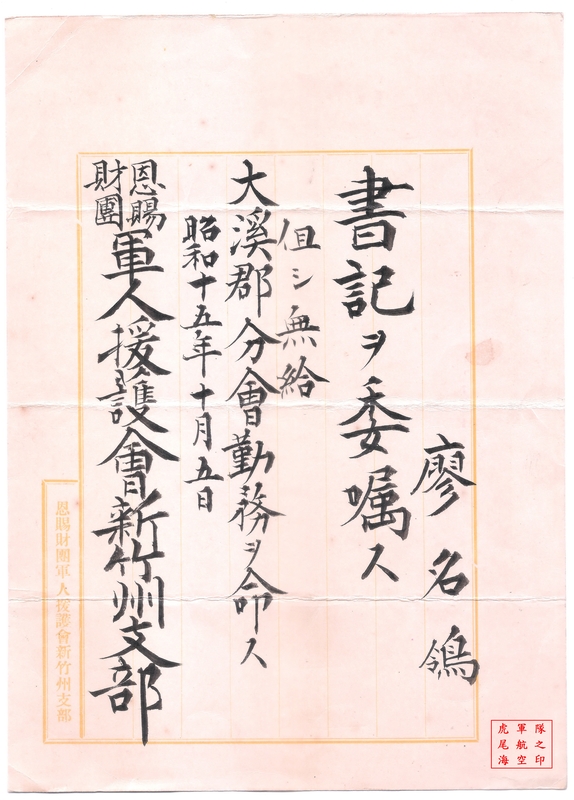 廖名鴒
書記ヲ委嘱ス
但シ無給
大溪郡分會勤務ヲ命ス
昭和十五年十月五日
恩賜
財團
軍人援護會新竹州支部
恩賜財團軍人援護會新竹州支部
隊之印
軍航空
虎尾海